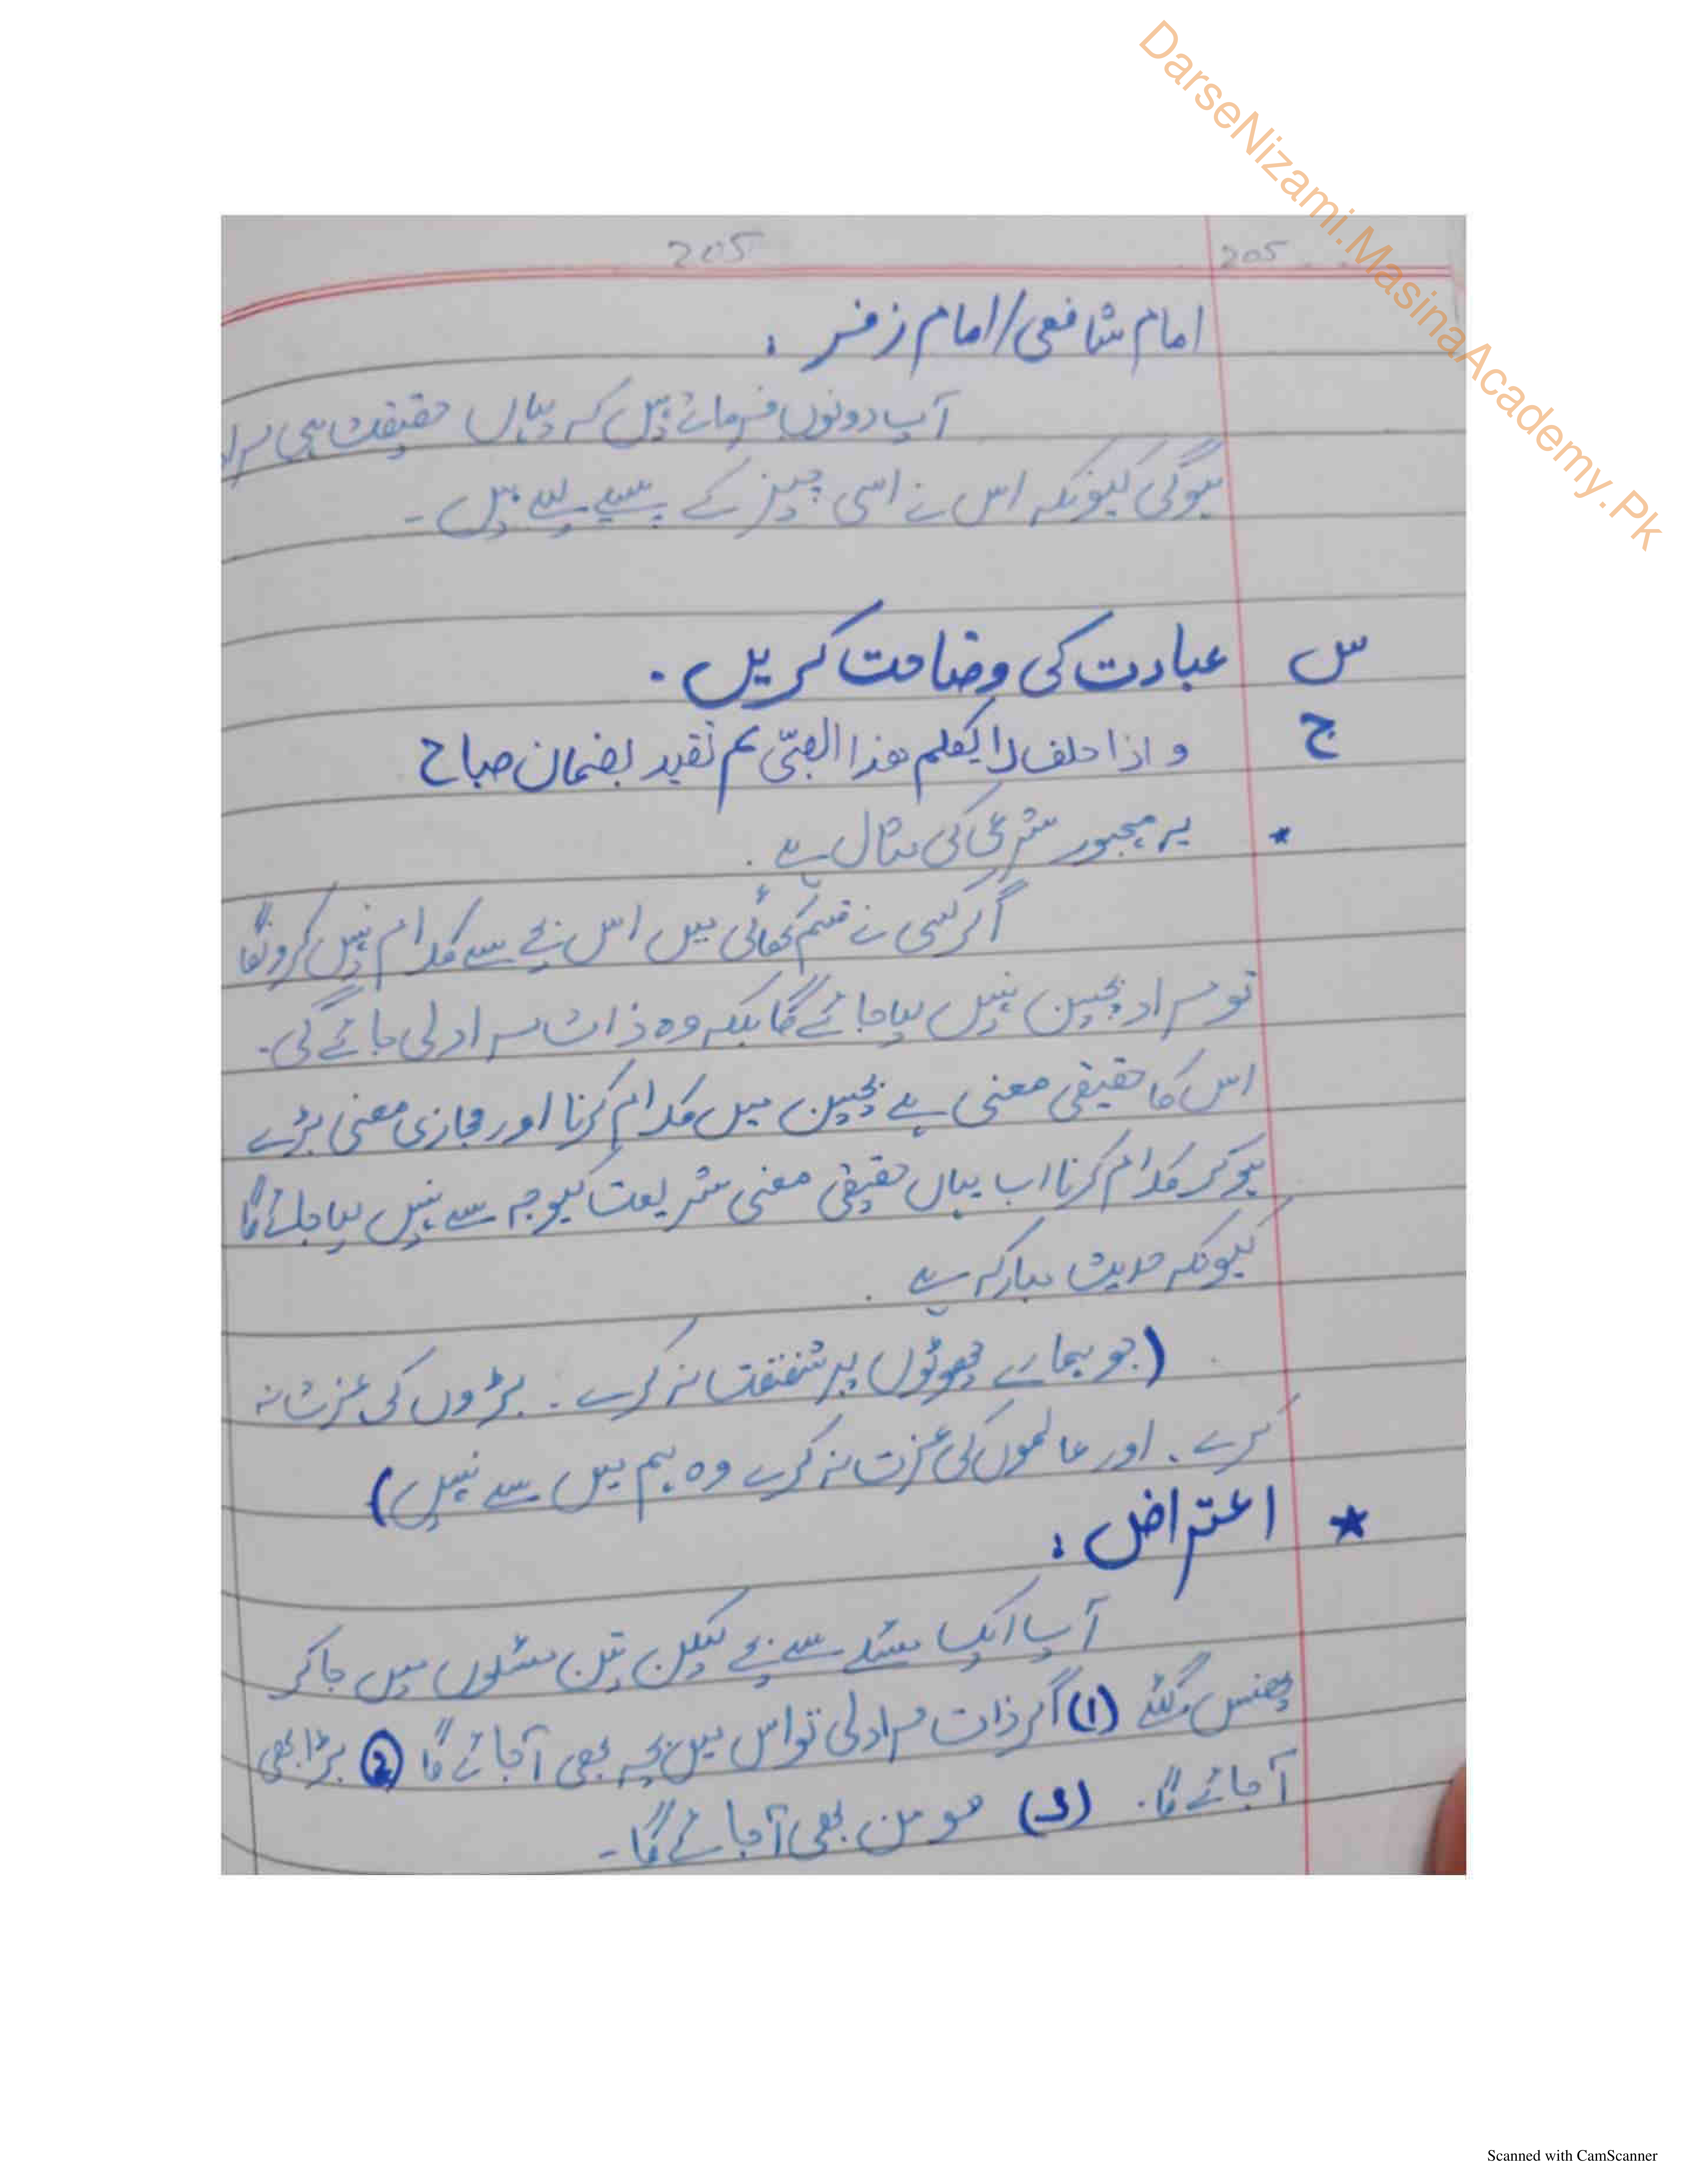 DarseNizami.MasinaAcademy.Pk
205 205
امام شافعی/امام زفر :
آپ دونوں فرماتے ہیں کہ یہاں حقیقت ہی مراد
ہوگی کیونکہ اس نے اسی چیز کے پیسے لیے ہیں۔
س عبادت کی وضاحت کریں ۔
ج و اذا حلف لا یکلم ھذا الصبّی لم تقید بضمان صباح
* یہ مجبور شرعی کی مثال ہے ۔
اگر کسی نے قسم کھائی میں اس بچے سے کلام نہیں کرونگا
تو مراد بچپن نہیں لیا جائے گا بلکہ وہ ذات مراد لی جائے گی۔
اس کا حقیقی معنی ہے بچپن میں کلام کرنا اور مجازی معنی بڑے
ہو کر کلام کرنا اب یہاں حقیقی معنی شریعت کیوجہ سے نہیں لیا جائے گا
کیونکہ حدیث مبارکہ ہے ۔
(جو ہمارے چھوٹوں پر شفقت نہ کرے ۔ بڑوں کی عزت نہ
کرے ۔ اور عالموں کی عزت نہ کرے وہ ہم میں سے نہیں)
★ اعتراض :
آپ ایک مسئلے سے بچے لیکن تین مسئلوں میں جا کر
پھنس گئے (1) اگر ذات مراد لی تو اس میں بچہ بھی آجائے گا (2) بڑا بھی
آجائے گا۔ (3) مومن بھی آجائے گا۔
Scanned with CamScanner